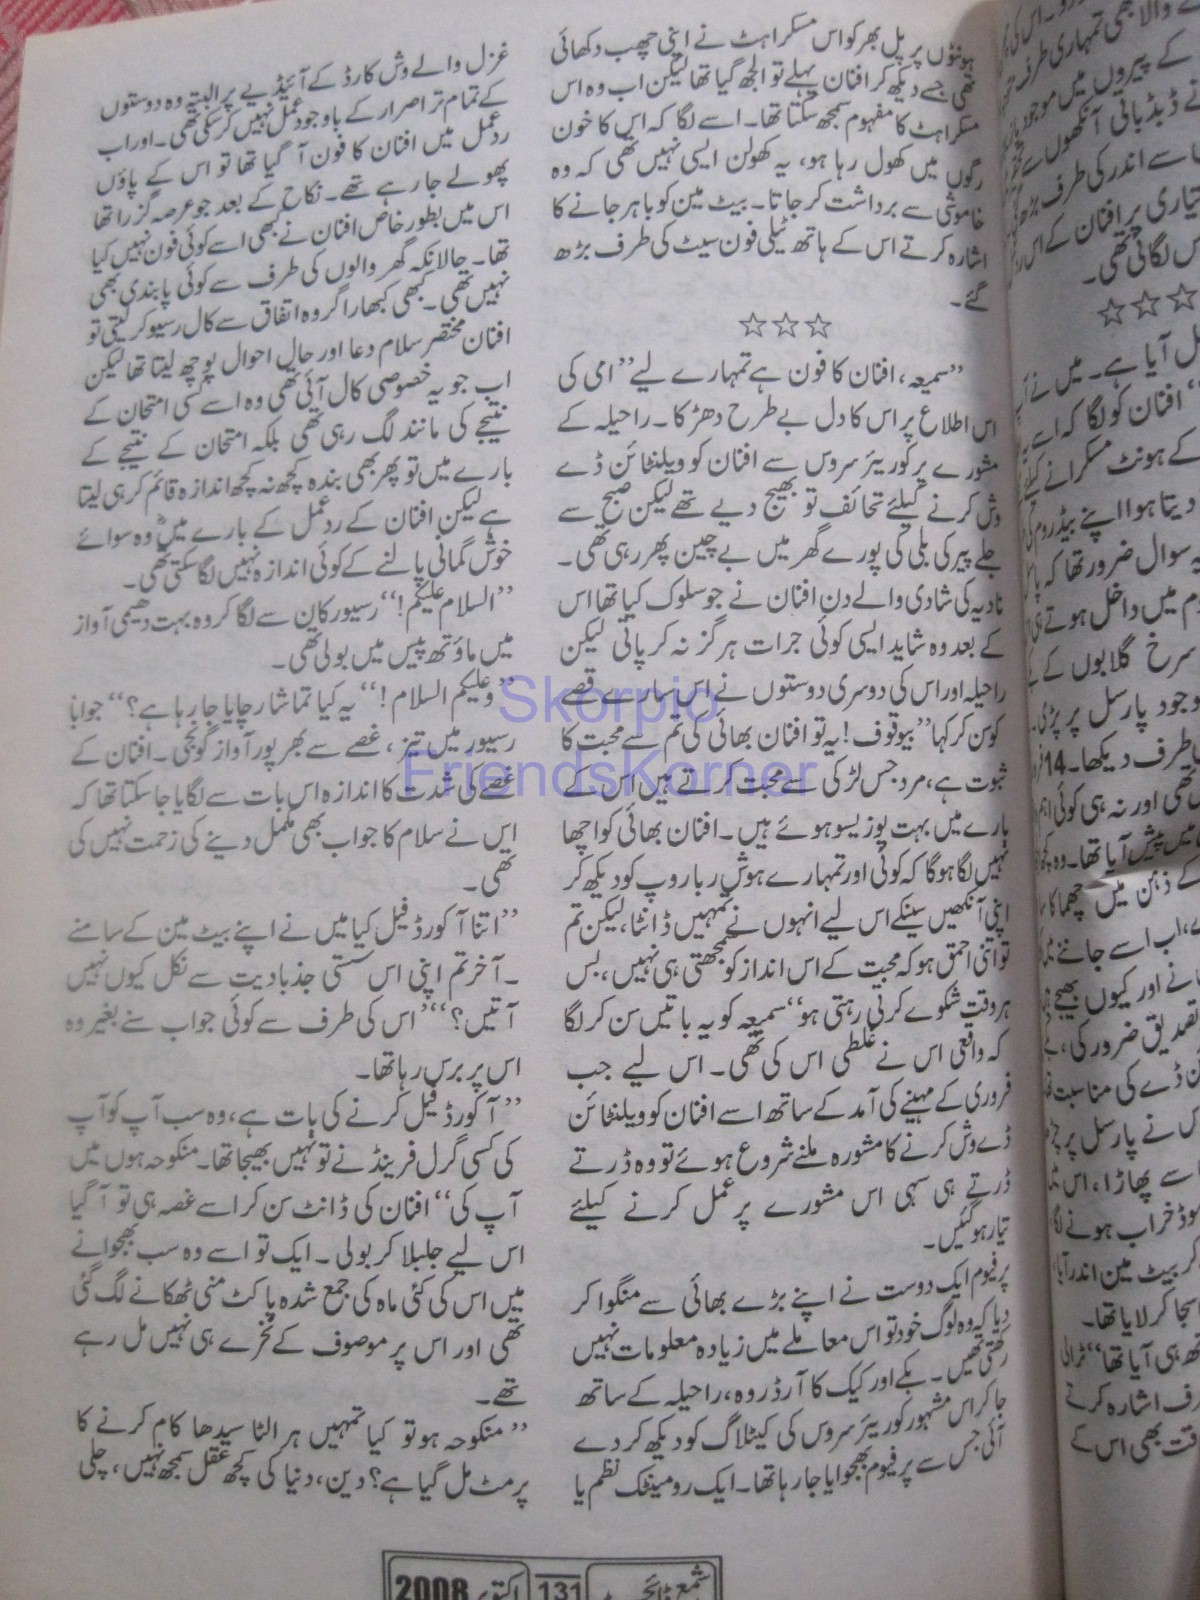 ہونٹوں پر پل بھر کو اس مسکراہٹ نے اپنی چھب دکھائی
تھی جسے دیکھ کر افنان پہلے تو الجھ گیا تھا لیکن اب وہ اس
مسکراہٹ کا مفہوم سمجھ سکتا تھا۔ اسے لگا کہ اس کا خون
رگوں میں کھول رہا ہو، یہ کھولن ایسی نہیں تھی کہ وہ
خاموشی سے برداشت کر جاتا۔ بیٹ مین کو باہر جانے کا
اشارہ کرتے اس کے ہاتھ ٹیلی فون سیٹ کی طرف بڑھ
گئے۔
☆☆☆
”سمیعہ، افنان کا فون ہے تمہارے لیے“ امی کی
اس اطلاع پر اس کا دل بے طرح دھڑکا۔ راحیلہ کے
مشورے پر کوریئر سروس سے افنان کو ویلنٹائن ڈے
وش کرنے کیلئے تحائف تو بھیج دیے تھے لیکن صبح سے
جلے پیر کی بلی کی پورے گھر میں بے چین پھر رہی تھی۔
نادیہ کی شادی والے دن افنان نے جو سلوک کیا تھا اس
کے بعد وہ شاید ایسی کوئی جرات ہرگز نہ کر پاتی لیکن
راحیلہ اور اس کی دوسری دوستوں نے اس سارے قصے
کو سن کر کہا ”بیوقوف! یہ تو افنان بھائی کی تم سے محبت کا
ثبوت ہے، مرد جس لڑکی سے محبت کرتے ہیں اس کے
بارے میں بہت پوزیسو ہوئے ہیں۔ افنان بھائی کو اچھا
نہیں لگا ہوگا کہ کوئی اور تمہارے ہوش ربا روپ کو دیکھ کر
اپنی آنکھیں سینکے اس لیے انہوں نے تمہیں ڈانٹا، لیکن تم
تو اتنی احمق ہو کہ محبت کے اس انداز کو سمجھتی ہی نہیں، بس
ہر وقت شکوے کرتی رہتی ہو“ سمیعہ کو یہ باتیں سن کر لگا
کہ واقعی اس نے غلطی اس کی تھی۔ اس لیے جب
فروری کے مہینے کی آمد کے ساتھ اسے افنان کو ویلنٹائن
ڈے وش کرنے کا مشورہ ملنے شروع ہوئے تو وہ ڈرتے
ڈرتے ہی سہی اس مشورے پر عمل کرنے کیلئے
تیار ہو گئیں۔
پرفیوم ایک دوست نے اپنے بڑے بھائی سے منگوا کر
دیا کہ وہ لوگ خود تو اس معاملے میں زیادہ معلومات نہیں
رکھتی تھیں۔ بکے اور کیک کا آرڈر وہ، راحیلہ کے ساتھ
جا کر اس مشہور کوریئر سروس کی کیٹلاگ کو دیکھ کر دے
آئی جس سے پرفیوم بھجوایا جا رہا تھا۔ ایک رومینٹک نظم یا
غزل والے وش کارڈ کے آئیڈیے پر البتہ وہ دوستوں
کے تمام تر اصرار کے باوجود عمل نہیں کر سکی تھی۔ اور اب
ردعمل میں افنان کا فون آ گیا تھا تو اس کے پاؤں
پھولے جا رہے تھے۔ نکاح کے بعد جو عرصہ گزرا تھا
اس میں بطور خاص افنان نے کبھی اسے کوئی فون نہیں کیا
تھا۔ حالانکہ گھر والوں کی طرف سے کوئی پابندی بھی
نہیں تھی۔ کبھی کبھار اگر وہ اتفاق سے کال رسیو کر لیتی تو
افنان مختصر سلام دعا اور حال احوال پوچھ لیتا تھا لیکن
اب جو یہ خصوصی کال آئی تھی وہ اسے کسی امتحان کے
نتیجے کی مانند لگ رہی تھی بلکہ امتحان کے نتیجے کے
بارے میں تو پھر بھی بندہ کچھ نہ کچھ اندازہ قائم کر ہی لیتا
ہے لیکن افنان کے ردعمل کے بارے میں وہ سوائے
خوش گمانی پالنے کے کوئی اندازہ نہیں لگا سکتی تھی۔
”السلام علیکم!“ رسیور کان سے لگا کر وہ بہت دھیمی آواز
میں ماؤتھ پیس میں بولی تھی۔
”وعلیکم السلام!“ یہ کیا تماشا رچایا جا رہا ہے؟“ جوابا
رسیور میں تیز، غصے سے بھرپور آواز گونجی۔ افنان کے
غصے کی شدت کا اندازہ اس بات سے لگایا جا سکتا تھا کہ
اس نے سلام کا جواب بھی مکمل دینے کی زحمت نہیں کی
تھی۔
”اتنا آکورڈ فیل کیا میں نے اپنے بیٹ مین کے سامنے
۔ آخر تم اپنی اس سستی جذباتیت سے نکل کیوں نہیں
آتیں؟“ اس کی طرف سے کوئی جواب سنے بغیر وہ
اس پر برس رہا تھا۔
”آکورڈ فیل کرنے کی بات ہے، وہ سب آپ کو آپ
کی کسی گرل فرینڈ نے تو نہیں بھیجا تھا۔ منکوحہ ہوں میں
آپ کی“ افنان کی ڈانٹ سن کر اسے غصہ ہی تو آ گیا
اس لیے جلبلا کر بولی۔ ایک تو اسے وہ سب بھجوانے
میں اس کی کئی ماہ کی جمع شدہ پاکٹ منی ٹھکانے لگ گئی
تھی اور اس پر موصوف کے نخرے ہی نہیں مل رہے
تھے۔
”منکوحہ ہو تو کیا تمہیں ہر الٹا سیدھا کام کرنے کا
پرمٹ مل گیا ہے؟ دین، دنیا کی کچھ عقل سمجھ نہیں، چلی
Skorpio
FriendsKorner
شمع ڈائجسٹ 131 اکتوبر 2008